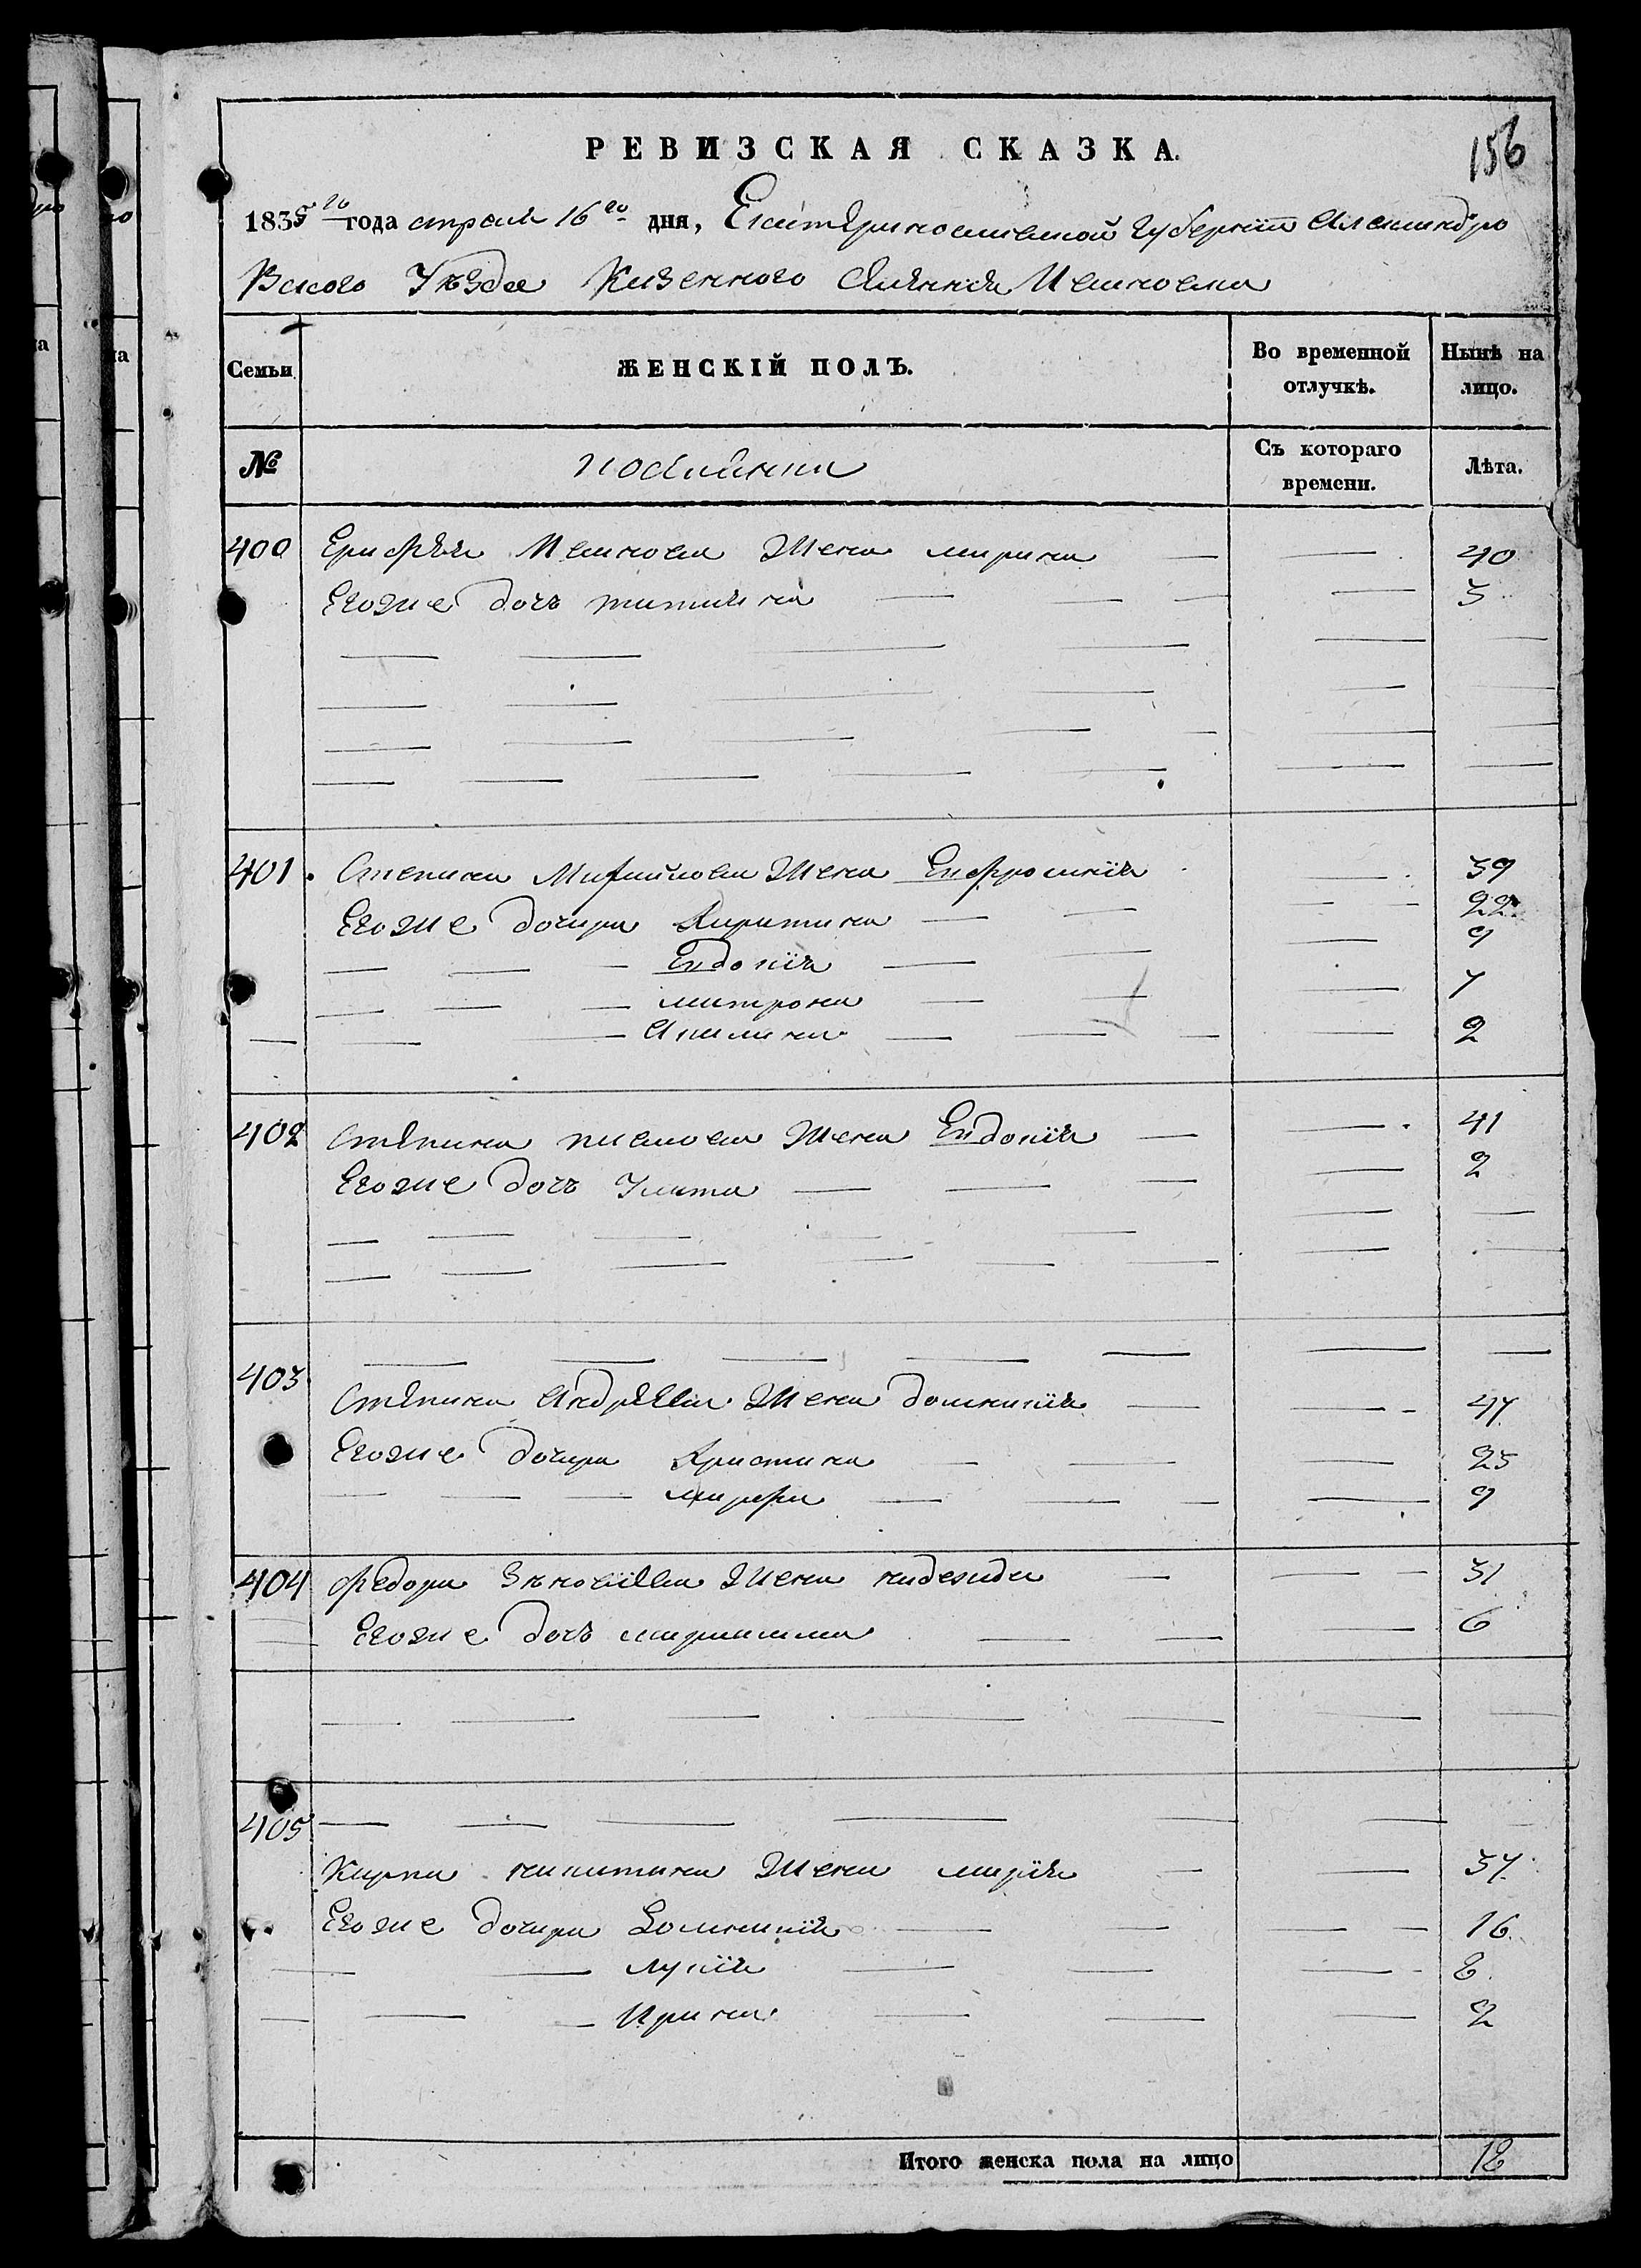 РЕВИЗСКАЯ СКАЗКА.
156
1835 го года апреля 16 го дня, Екатеринославской губернии Александро
Вского Уезда Казенного Селения
Семьи
ЖЕНСКІЙ ПОЛЪ.
Во временной отлучкѣ.
Нынѣ на лицо.
№
Съ котораго времени.
Лѣта.
400 Ерофея Жена марина 40
Егоже дочъ татияна 5
401. Степана Михайлова Жена Ефросинія 39
Егоже дочири 22
Евдокія 9
матрона 7
Акилина 2
402 Степана Жена Евдокія 41
Егоже дочъ Улита 2
403
Степана Андреева Жена домникія 47
Егоже дочири Христина 25
марфа 9
404 федора Зѣновіева Жена надежда 31
Егоже дочъ 6
405
Карпа никитина Жена марія 37
Егоже дочири Домникія 16
лукія 8
Ирина 2
Итого женска пола на лицо 18